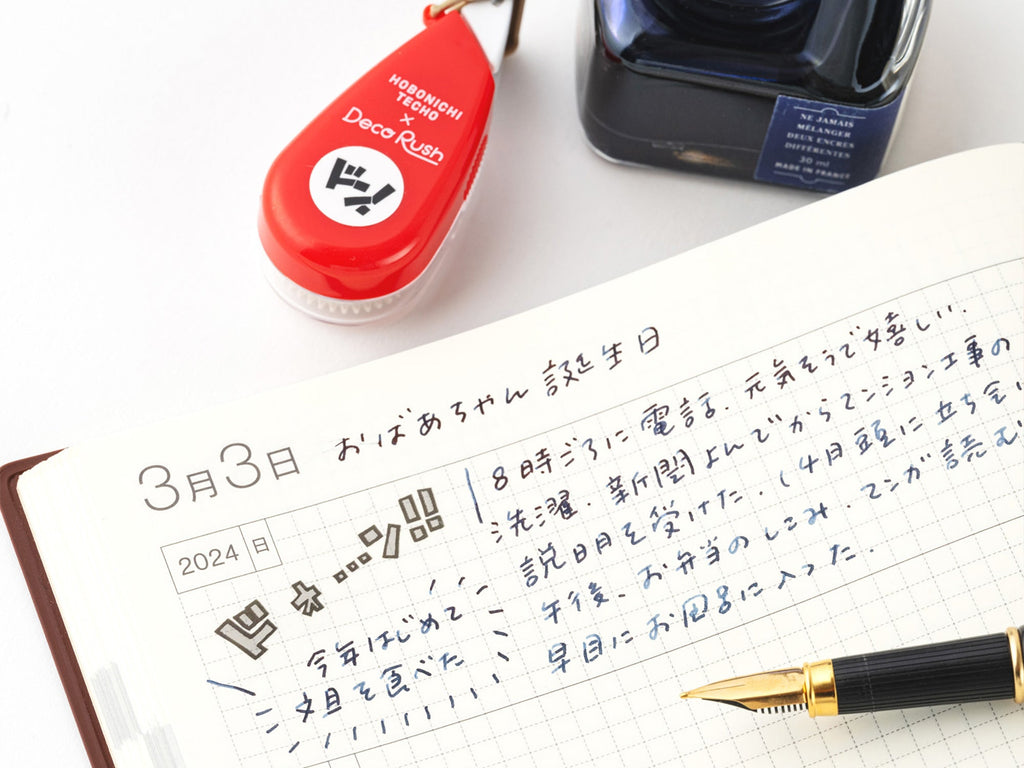 HOBONICHI
TECHO
×
Deco Rush
ドン!
NE JAMAIS
MÉLANGER
DEUX ENCRES
DIFFÉRENTES
30 ml
MADE IN FRANCE
3月3日
おばあちゃん誕生日
2024 日
ドキ…ン!!
今年はじめて
を食べた
8時ごろに電話、元気そうで嬉しい.
洗濯、新聞よんでからマンション工事の
説明を受けた.(4月頭に立ち会い
午後、お弁当のしこみ.マンガ読む
早目にお風呂に入った.